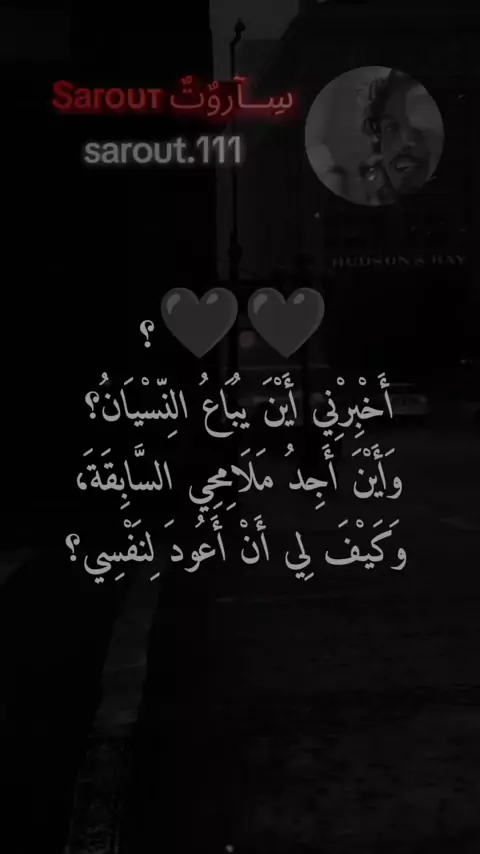 Sarouт سِــآروٌتٌ
sarout.111
HUDSON'S BAY
🖤🖤؟
أَخْبِرْنِي أَيْنَ يُبَاعُ النِّسْيَانُ؟
وَأَيْنَ أَجِدُ مَلَامِحِي السَّابِقَةَ،
وَكَيْفَ لِي أَنْ أَعُودَ لِنَفْسِي؟